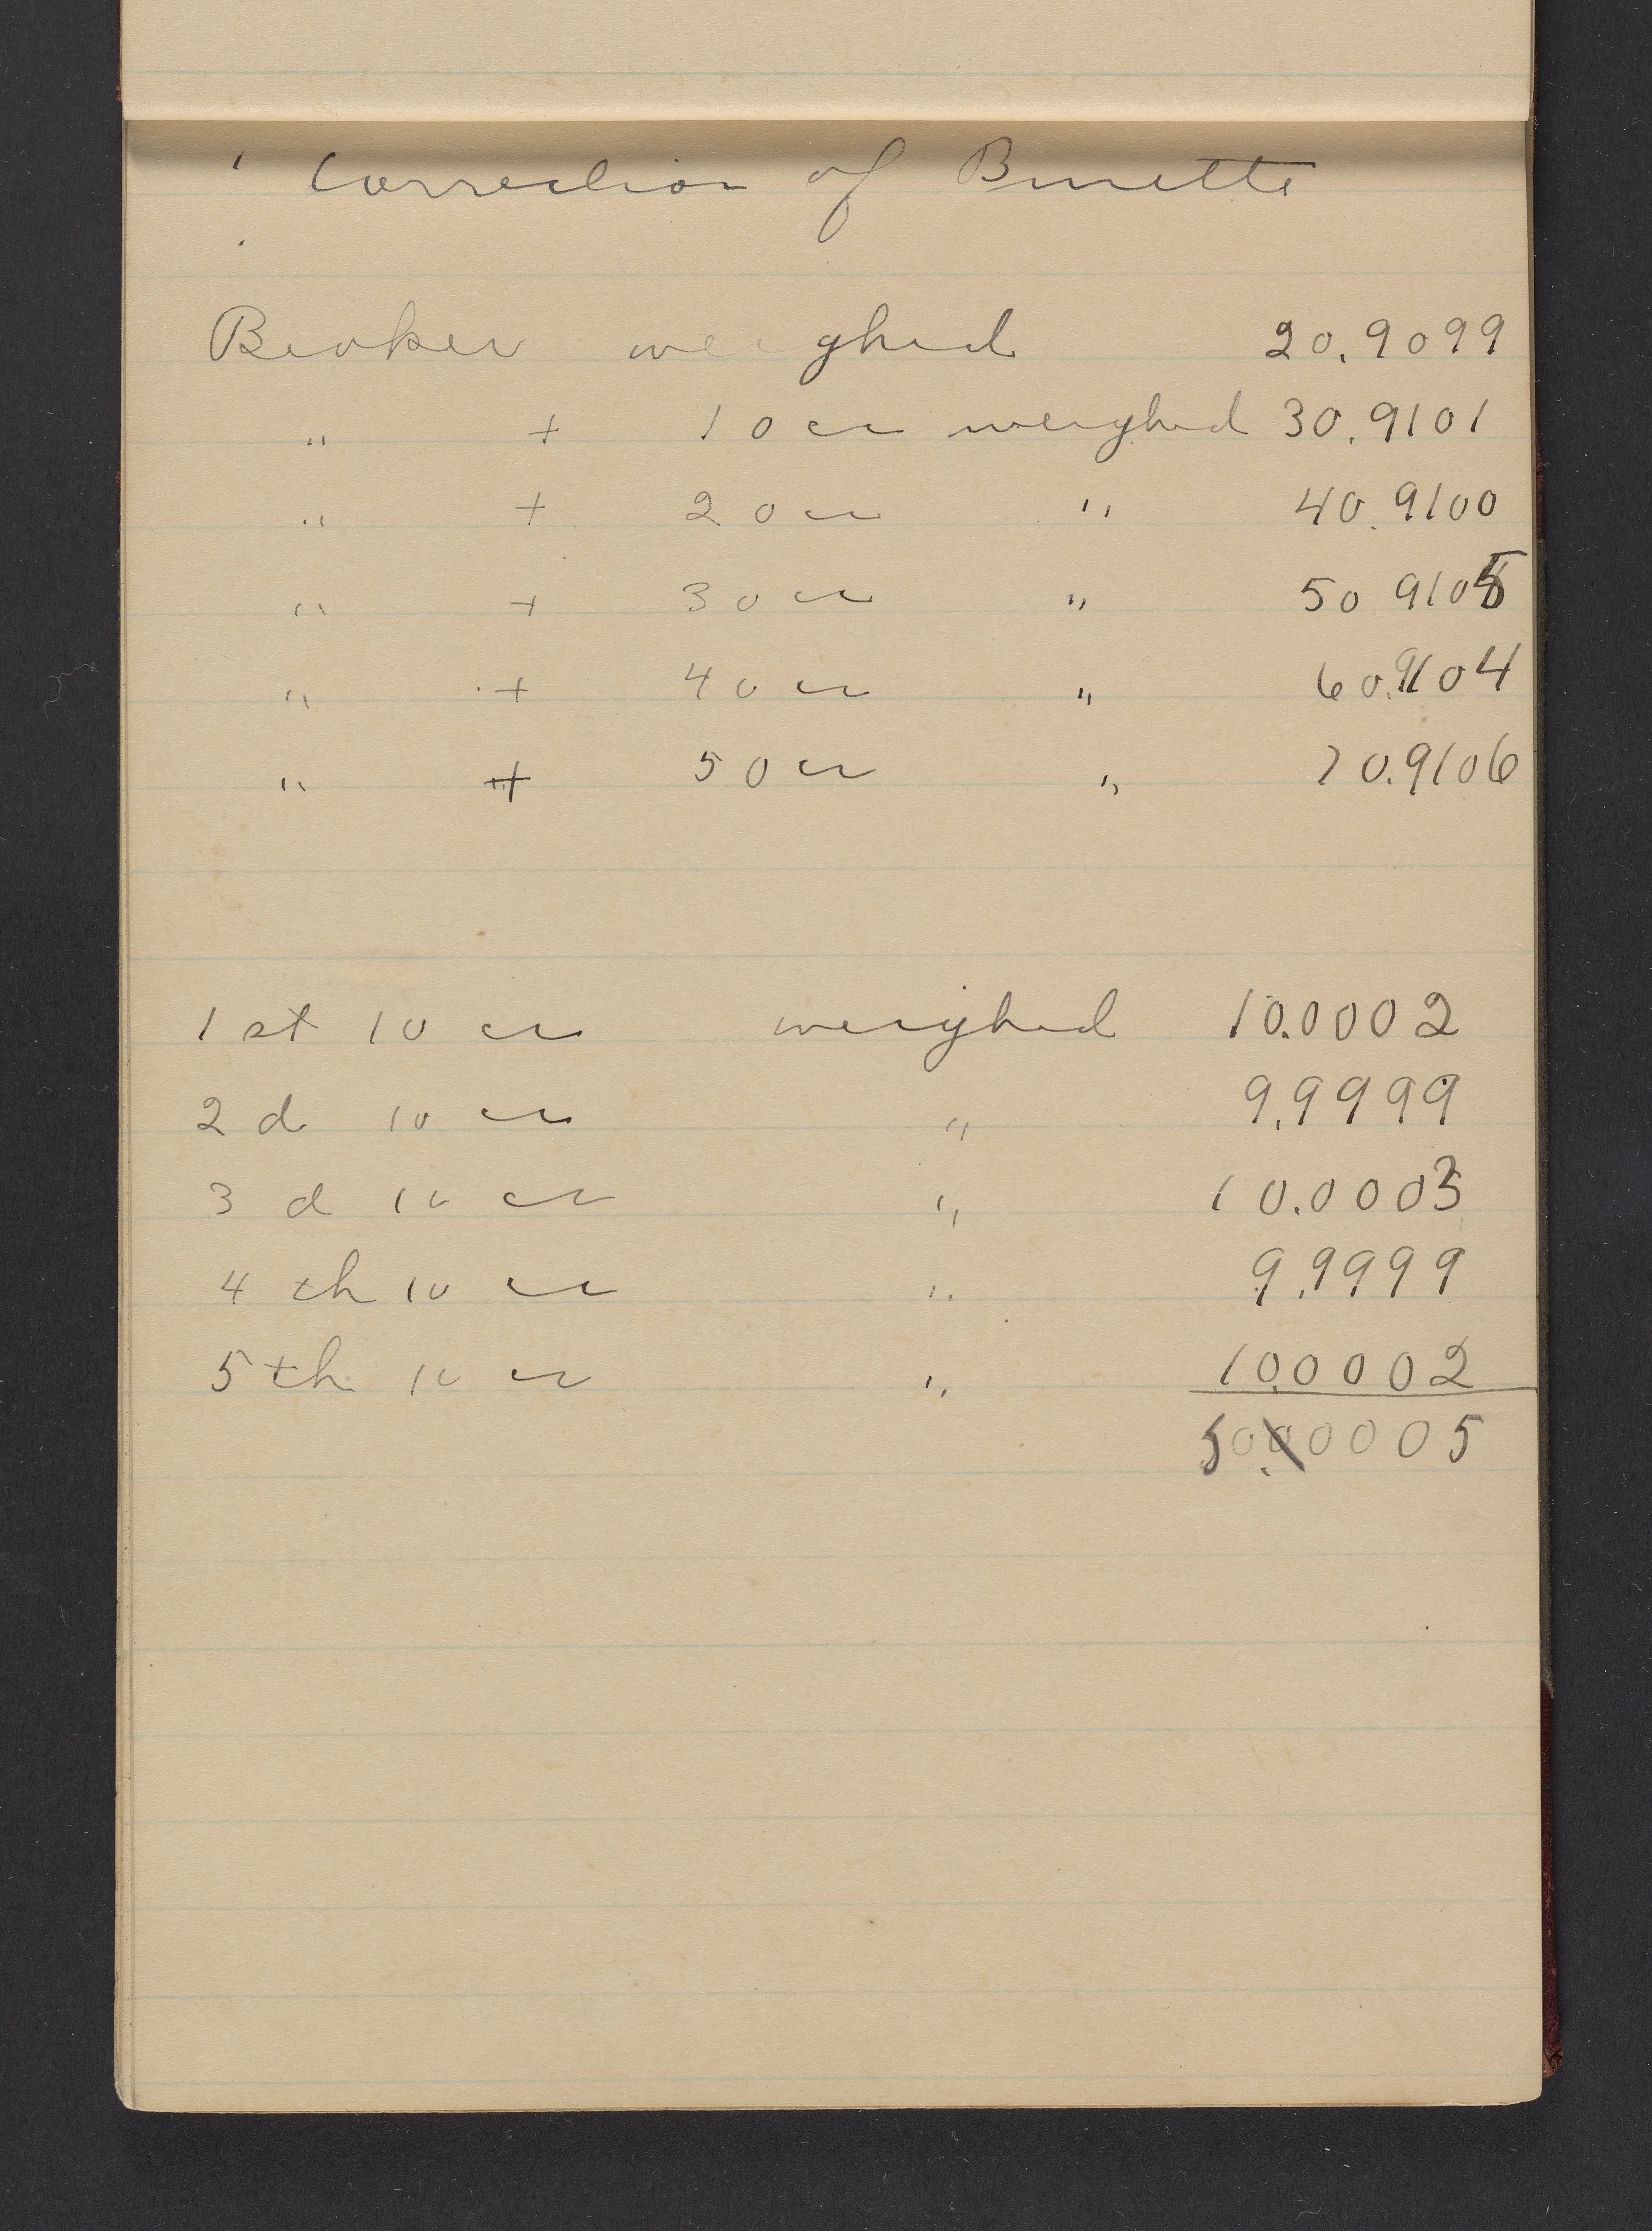 Correction of Burette
Beaker weighed 20.9099
" + 10 cc weighed 30.9101
" + 20 cc " 40.9100
" + 30 cc " 50 9105
" + 40 cc " 60.9104
" + 50 cc " 70.9106
1st 10 cc weighed 10.0002
2d 10 cc " 9.9999
3d 10 cc " 10.0003
4th 10 cc " 9.9999
5th 10 cc " 10.0002
50.0005